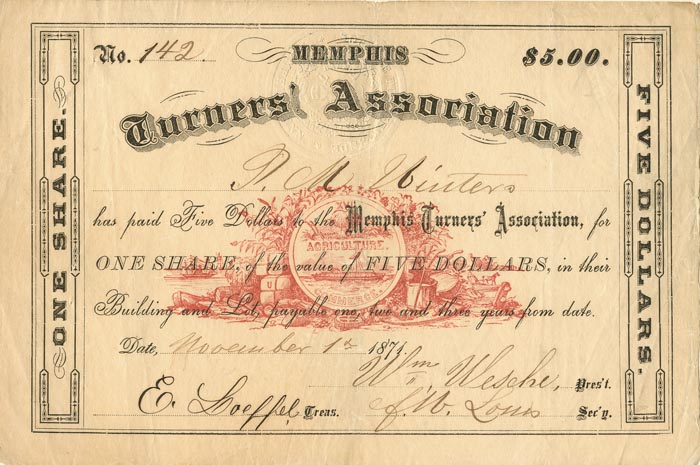 No. 142. MEMPHIS $5.00.
Turners' Association
P. M. Winters
has paid Five Dollars to the Memphis Turners' Association, for
ONE SHARE, of the value of FIVE DOLLARS, in their
Building and Lot, payable one, two and three years from date.
Date, November 1st 1871.
Wm. Wesche, Pres't.
E. Loeffel, Treas. Sec'y.
ONE SHARE.
FIVE DOLLARS.
AGRICULTURE.
COMMERCE